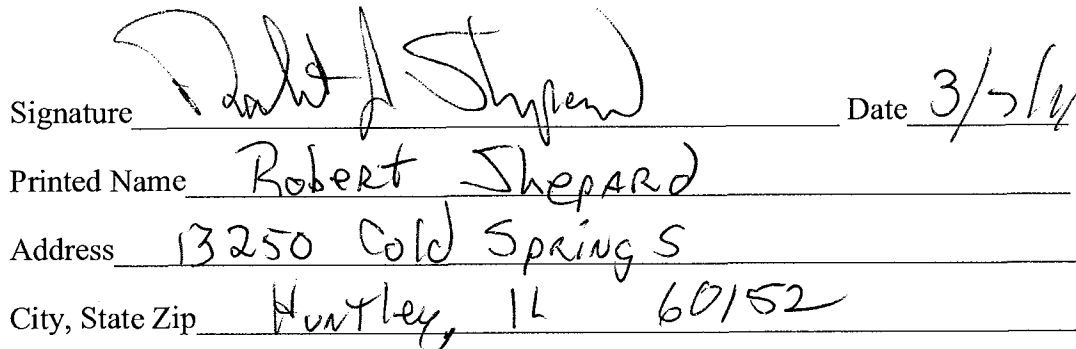 Signature Robert J Shepard Date 3/7/11
Printed Name Robert Shepard
Address 13250 Cold Springs
City, State Zip Huntley, IL 60152